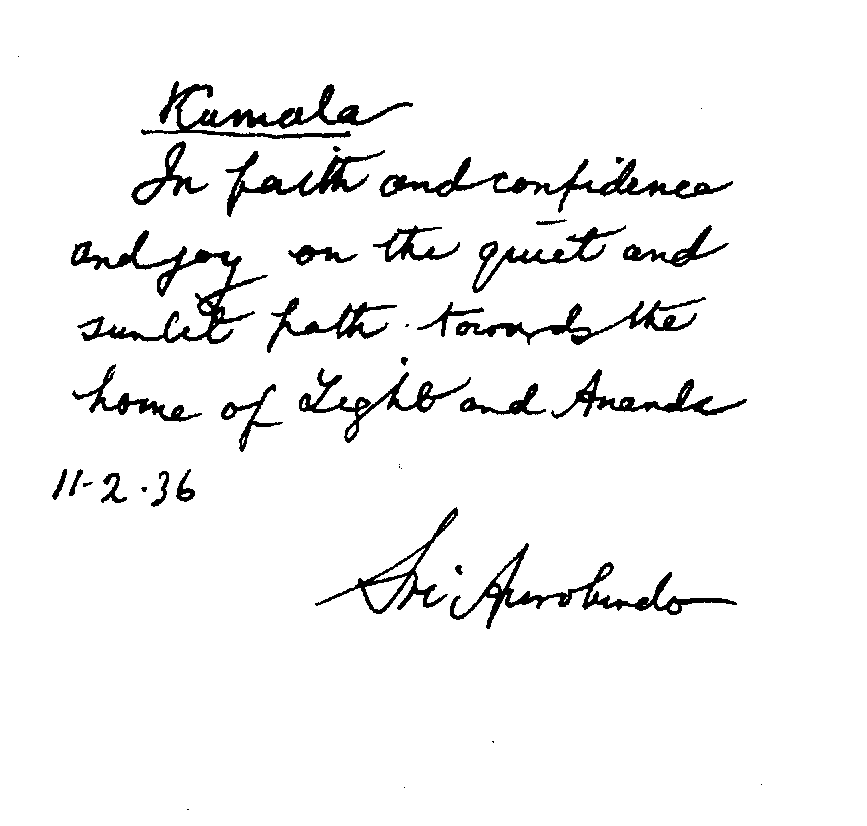 Kamala
In faith and confidence
and joy on the quiet and
sunlit path towards the
home of Light and Ananda
11-2-36
Sri Aurobindo